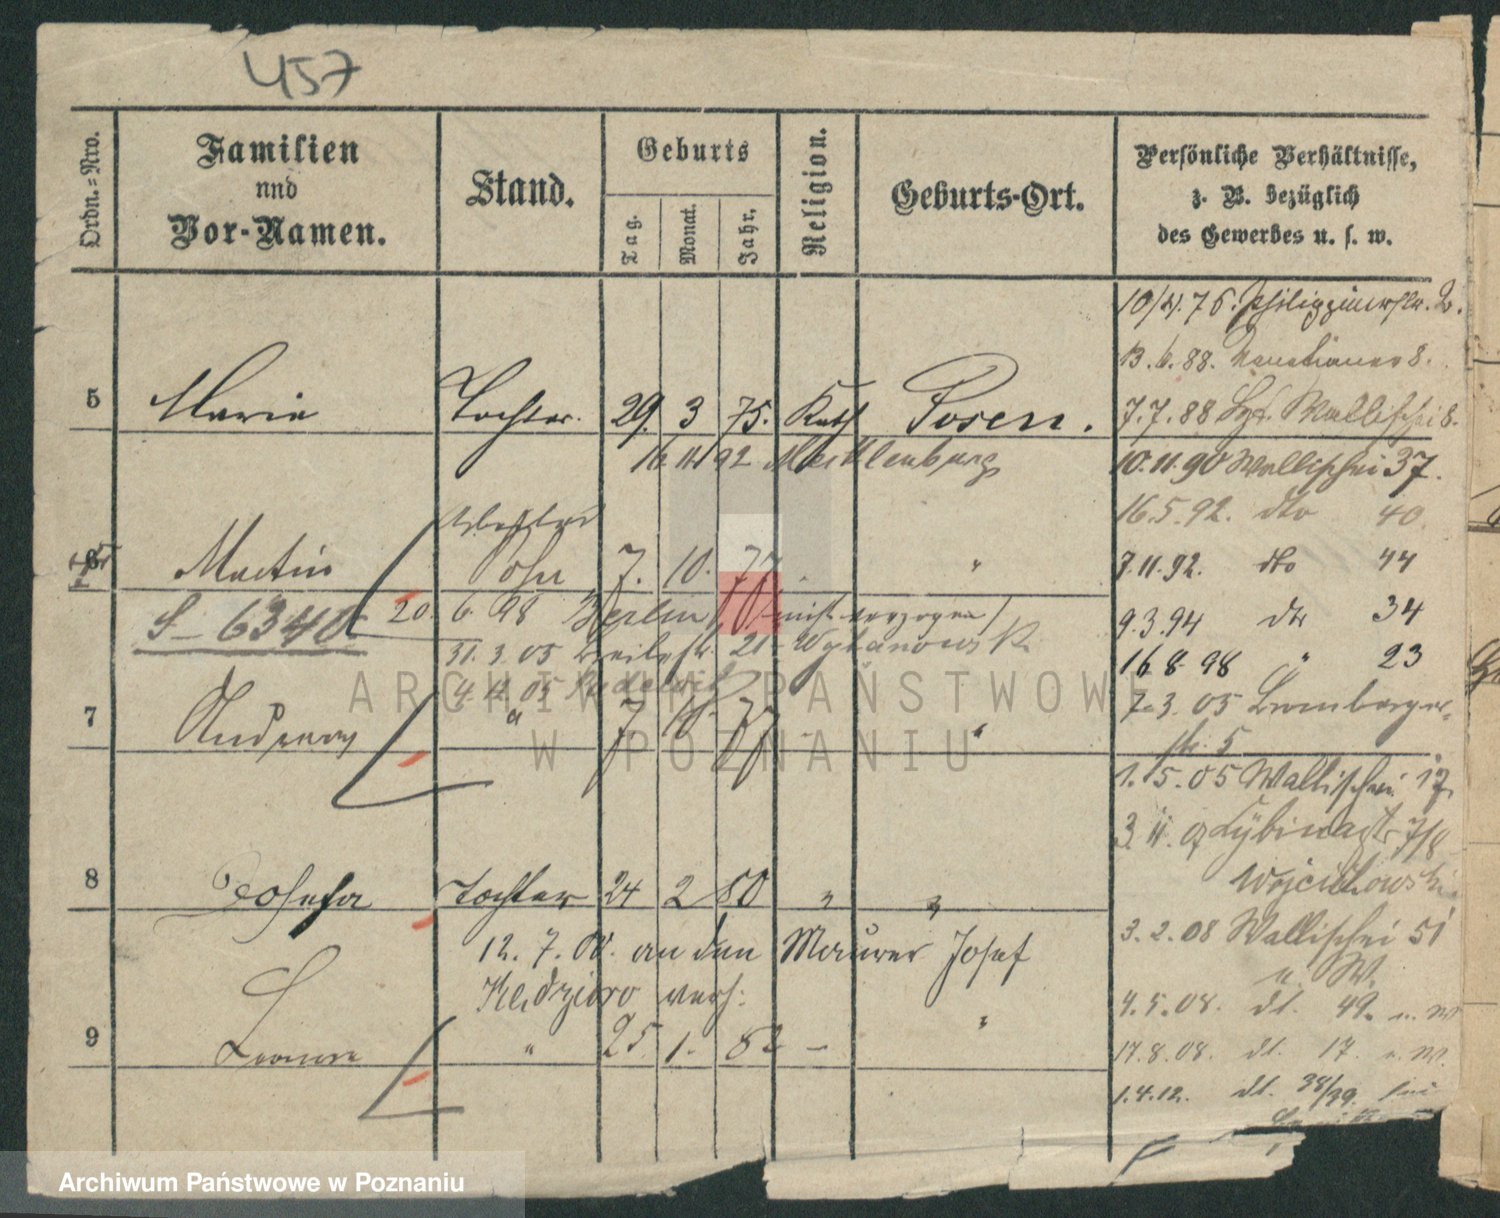 457
Ordn.-Nro.
Familien
und
Vor-Namen.
Stand.
Geburts
Tag.
Monat.
Jahr.
Religion.
Geburts-Ort.
Persönliche Verhältnisse,
z. B. bezüglich
des Gewerbes u. s. w.
10/4. 76. Philippinerstr. 2.
13. 6. 88. Venetianer 8.
5 Marie Tochter. 29. 3 75. Kath Posen.
7. 7. 88 Wallischei 8.
92 Mecklenburg
10. 11. 90 Wallischei 37.
16. 5. 92. dto 40.
6 Martin Sohn 7. 10. 77 "
7. 11. 92. dto 44
S - 6340
20. 6. 98 Berlin
9. 3. 94 dto 34
31. 3. 05 21
16 8 98 " 23
4. 11. 05
7. 3. 05 Bromberger-
str. 5
7 Andreas " 7. "
1. 5. 05 Wallischei 17
3 11. 07 Cybinastr 7/8
Wojciechowski
8 Josefa Tochter 24 2 80 " "
3. 2. 08 Wallischei 51
u. W.
12. 7. 00. an den Maurer Josef
Kedzioro verh:
4. 5. 08. dt. 49. u. W
9 " 25 1. 82 - "
17. 8. 08. dt. 17. u. W.
1. 4. 12. dt. 38/39.
ARCHIWUM PAŃSTWOWE
W POZNANIU
Archiwum Państwowe w Poznaniu